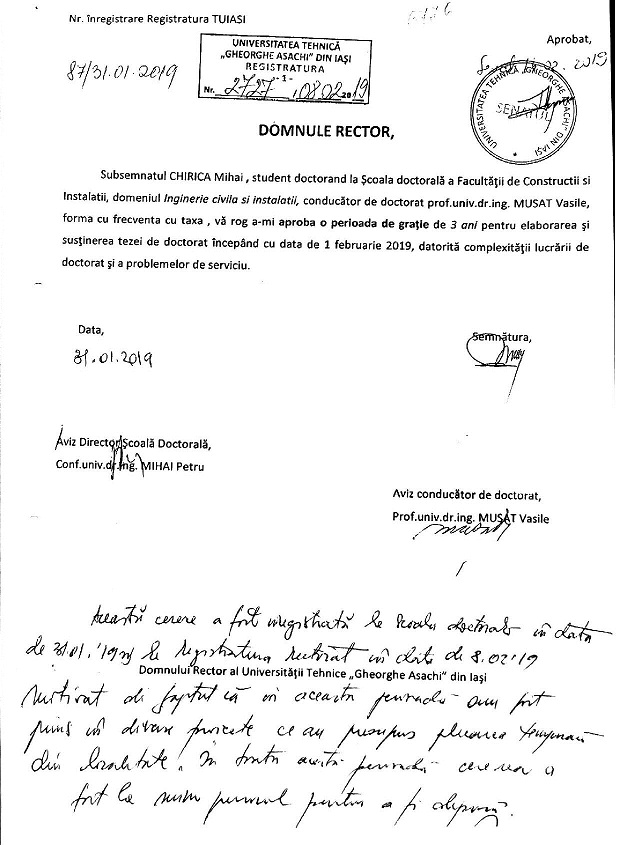 Nr. înregistrare Registratura TUIASI
87/31.01.2019
UNIVERSITATEA TEHNICĂ
„GHEORGHE ASACHI” DIN IAŞI
REGISTRATURA
-1-
Nr. 2727, 08.02.2019
Aprobat,
2019
UNIVERSITATEA TEHNICĂ „GHEORGHE ASACHI” DIN IAŞI
SENATUL
DOMNULE RECTOR,
Subsemnatul CHIRICA Mihai , student doctorand la Şcoala doctorală a Facultăţii de Constructii si
Instalatii, domeniul Inginerie civila si instalatii, conducător de doctorat prof.univ.dr.ing. MUSAT Vasile,
forma cu frecventa cu taxa , vă rog a-mi aproba o perioada de graţie de 3 ani pentru elaborarea şi
susţinerea tezei de doctorat începând cu data de 1 februarie 2019, datorită complexităţii lucrării de
doctorat şi a problemelor de serviciu.
Data,
31.01.2019
Semnătura,
Aviz Director Şcoală Doctorală,
Conf.univ.dr.ing. MIHAI Petru
Aviz conducător de doctorat,
Prof.univ.dr.ing. MUSAT Vasile
Această cerere a fost înregistrată la Școala doctorală în data
de 31.01.'19 și la registratura rectorat în data de 8.02'19
Domnului Rector al Universităţii Tehnice „Gheorghe Asachi” din Iaşi
Motivat de faptul că în această perioadă am fost
prins în diverse proiecte ce au presupus plecarea temporară
din localitate. În toată această perioadă cererea a
fost la mine personal pentru a fi depusă.